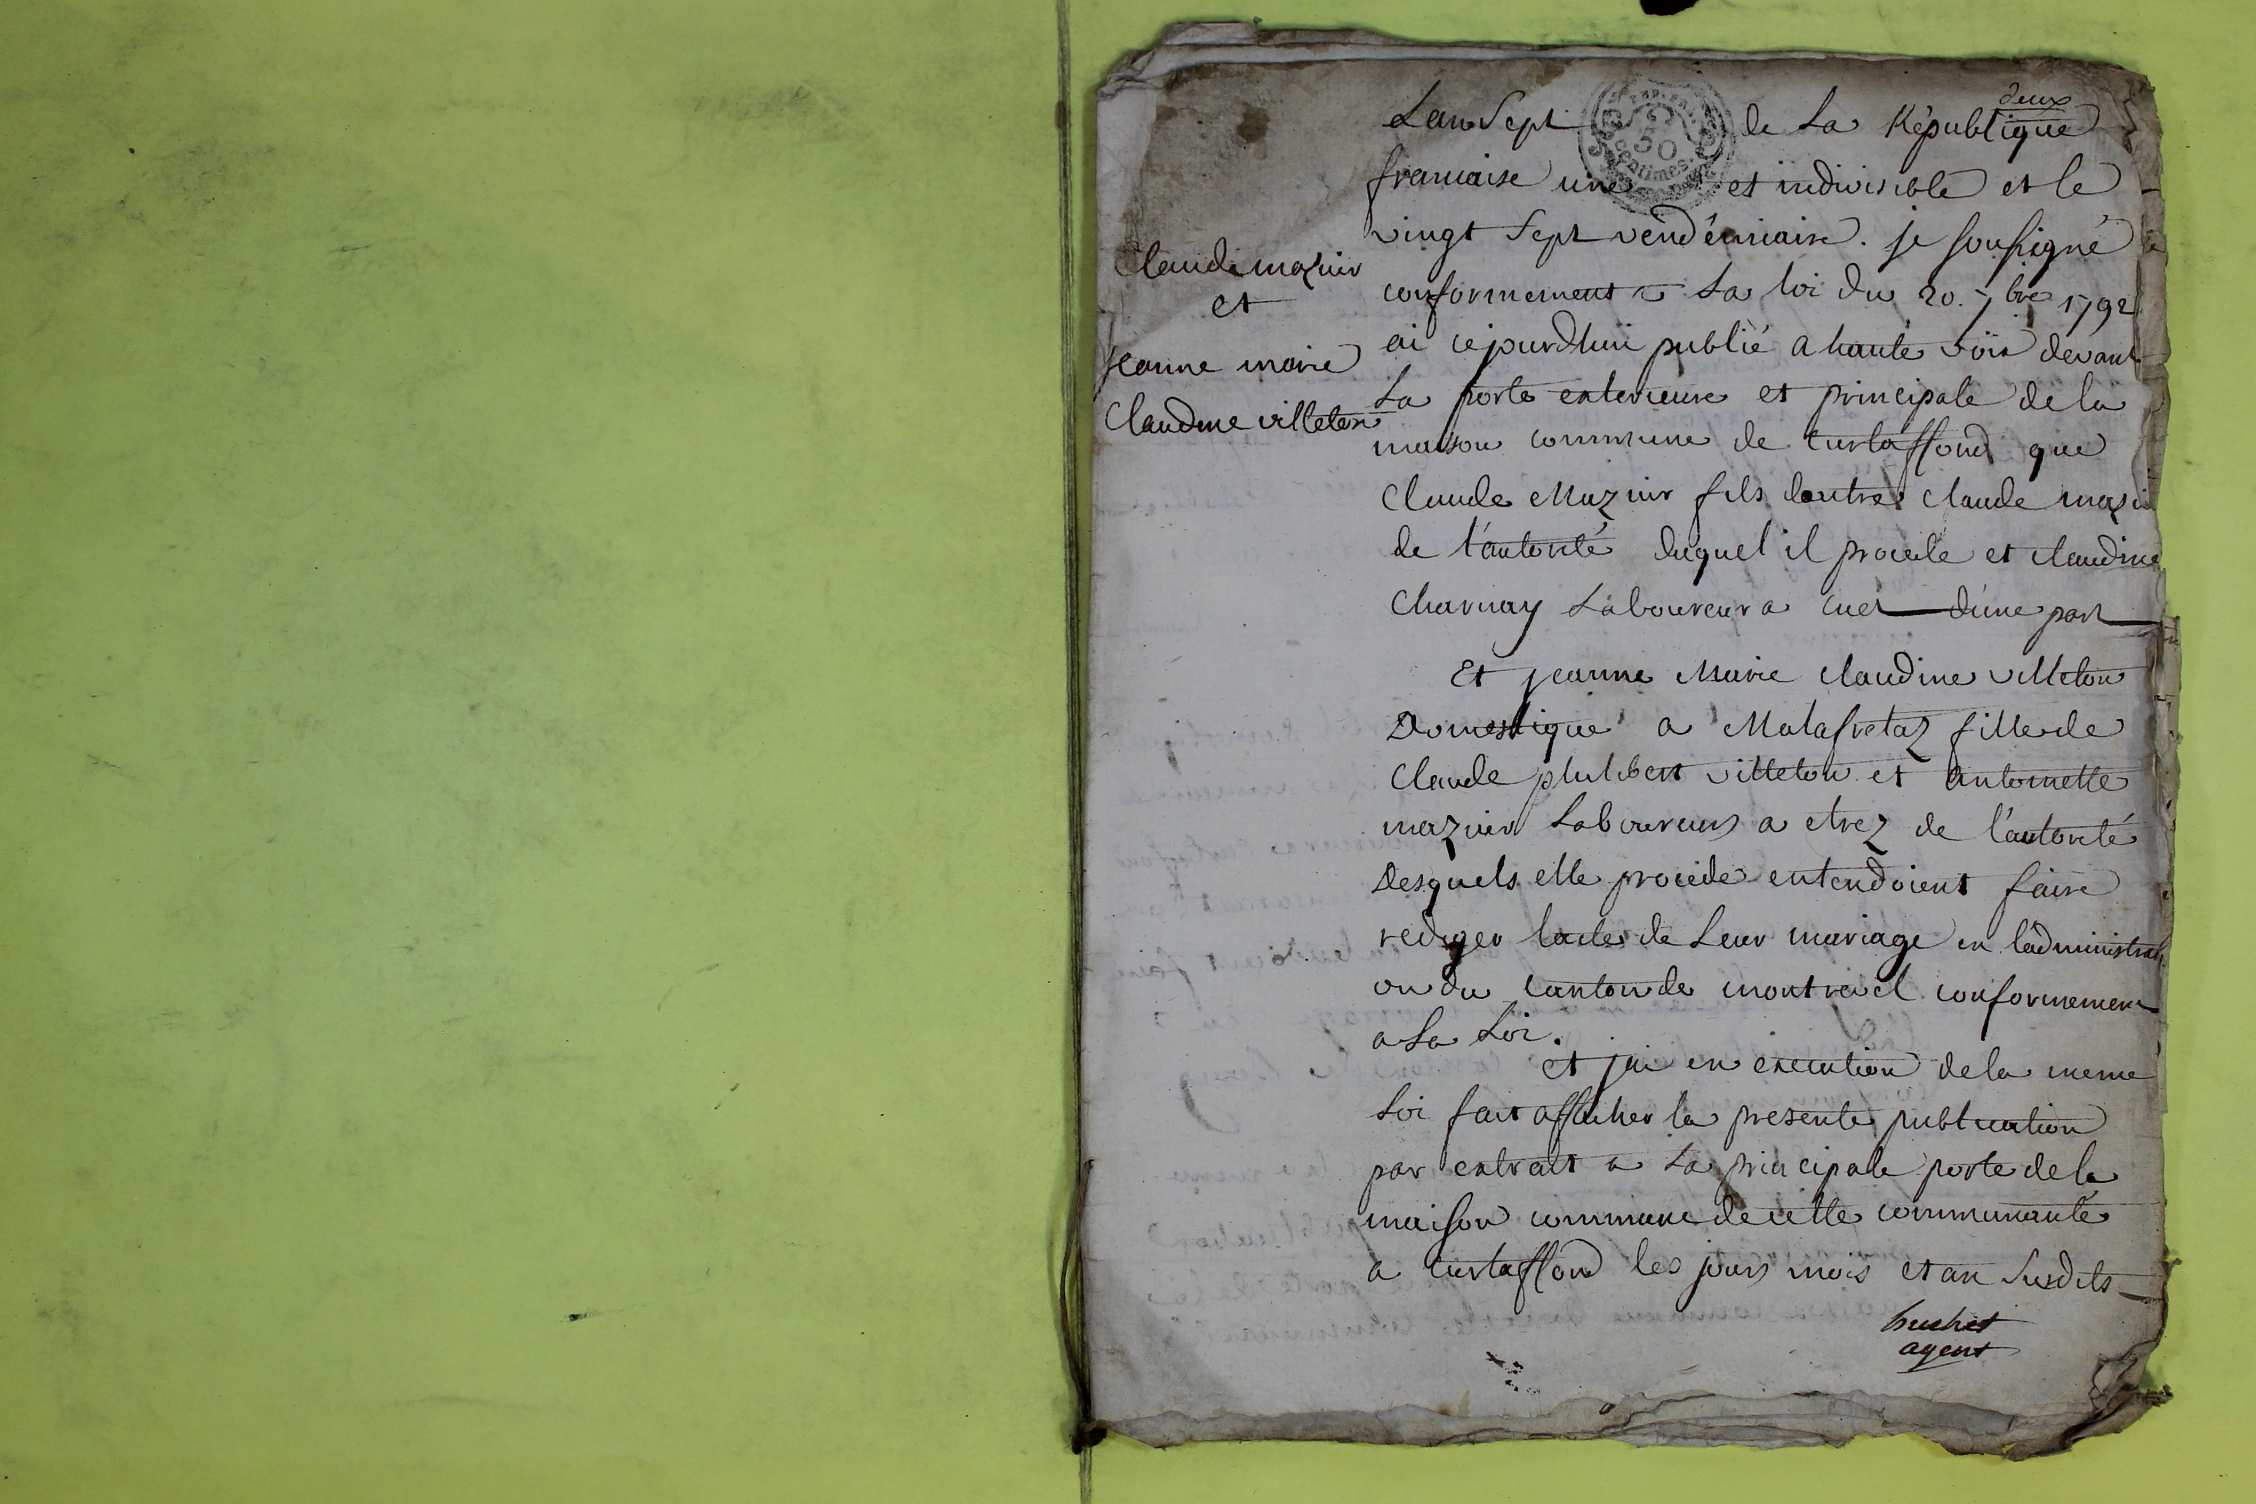 deux
Lan Sept de La République
REP. FRA.
50
centimes
francaise une et indivisible et le
vingt Sept vendémiaire. je soussigné
conformement a La loi du 20. 7bre 1792
ai cejourdhui publié a haute voix devant
La porte exterieure et principale de la
maison commune de curtaffond que
Claude Mazuir fils dautre Claude mazui
de l'autorité duquel il procede et claudine
Charnay Laboureur a cuet dune part
Claude mazuir
et
jeanne marie
Claudine villeton
Et jeanne Marie claudine villeton
Domestique a Malafretaz fille de
Claude philibert villeton et antoinette
mazuir Laboureurs a etrez de l'autorité
Desquels elle procede entendoient faire
rediger lacte de Leur mariage en ladministrati
on du canton de montrevel conformement
a La Loi.
et jai en execution de la meme
Loi fait afficher la presente publication
par extrait a La principale porte de la
maison commune de cette communauté
a curtaffond les jours mois et an Susdits
buchet
agent